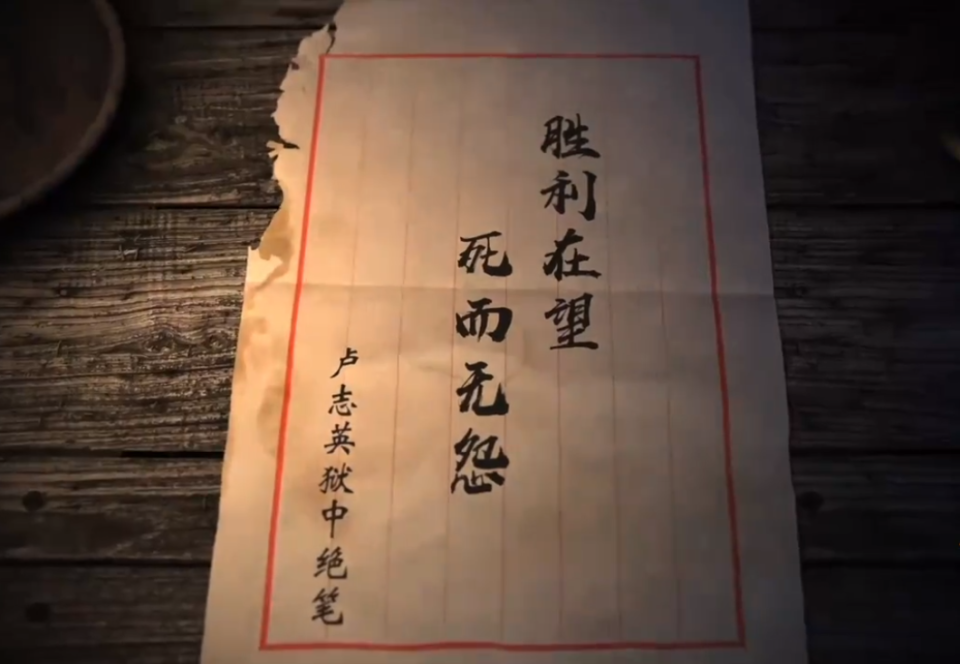 胜利在望
死而无怨
卢志英狱中绝笔